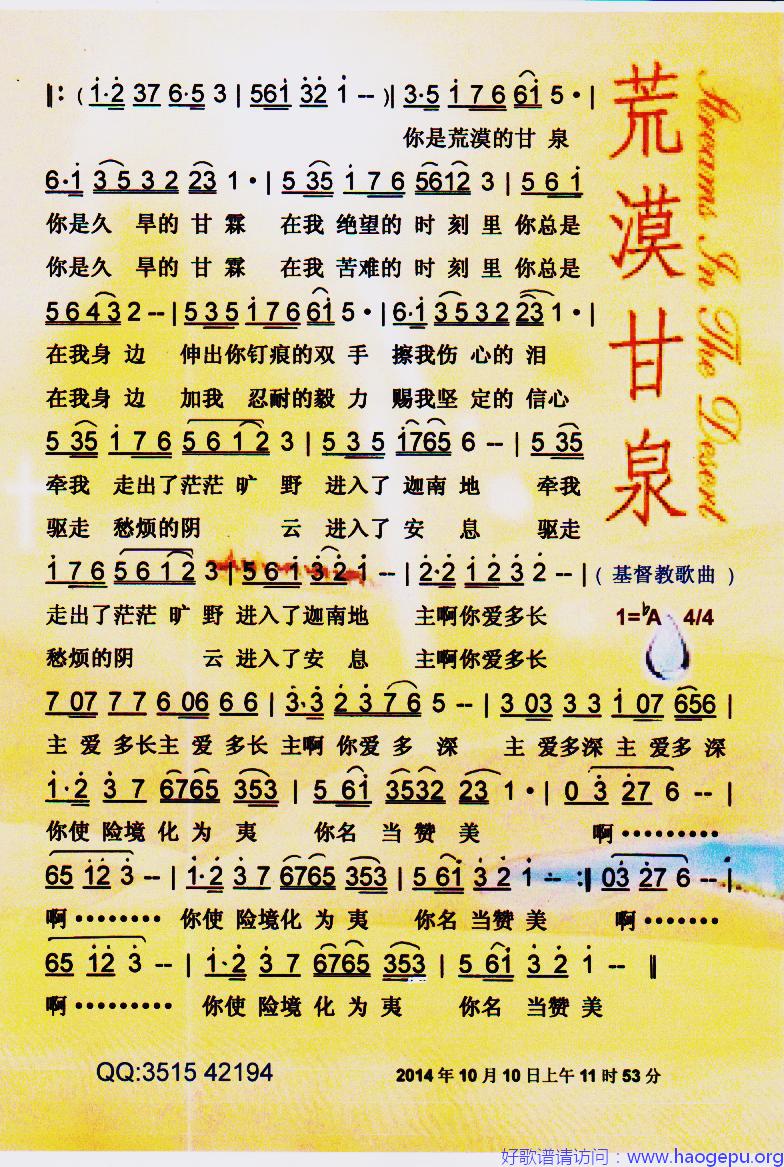 荒漠甘泉
Streams In The Desert
‖: ( 1·2 37 6·5 3 | 561 32 1 -- ) | 3·5 1 7 6 61 5 · |
你是荒漠的甘 泉
6·1 3 5 3 2 23 1 · | 5 35 1 7 6 5612 3 | 5 6 1
你是久 旱的 甘 霖 在我 绝望的 时 刻 里 你总是
你是久 旱的 甘 霖 在我 苦难的 时 刻 里 你总是
5 6 4 3 2 -- | 5 3 5 1 7 6 61 5 · | 6·1 3 5 3 2 23 1 · |
在我身 边 伸出你钉痕的双 手 擦我伤 心的 泪
在我身 边 加我 忍耐的毅 力 赐我坚 定的 信心
5 35 1 7 6 5 6 1 2 3 | 5 3 5 1765 6 -- | 5 35
牵我 走出了茫茫 旷 野 进入了 迦南 地 牵我
驱走 愁烦的阴 云 进入了 安 息 驱走
1 7 6 5 6 1 2 3 | 5 6 1 3 2 1 -- | 2·2 1 2 3 2 -- | ( 基督教歌曲 )
走出了茫茫 旷 野 进入了迦南地 主啊你爱多长
1=♭A 4/4
愁烦的阴 云 进入了安 息 主啊你爱多长
7 07 7 7 6 06 6 6 | 3·3 2 3 7 6 5 -- | 3 03 3 3 1 07 656 |
主 爱 多长主 爱 多长 主啊 你爱 多 深 主 爱多深 主 爱多 深
1·2 3 7 6765 353 | 5 61 3532 23 1 · | 0 3 27 6 -- |
你使 险境 化 为 夷 你名 当 赞 美 啊·········
65 12 3 -- | 1·2 3 7 6765 353 | 5 61 3 2 1 -- :‖ 03 27 6 -- |
啊········ 你使 险境化 为 夷 你名 当赞 美 啊·······
65 12 3 -- | 1·2 3 7 6765 353 | 5 61 3 2 1 -- ‖
啊········· 你使 险境 化 为 夷 你名 当赞 美
QQ:3515 42194
2014 年 10 月 10 日上午 11 时 53 分
好歌谱请访问：www.haogepu.org